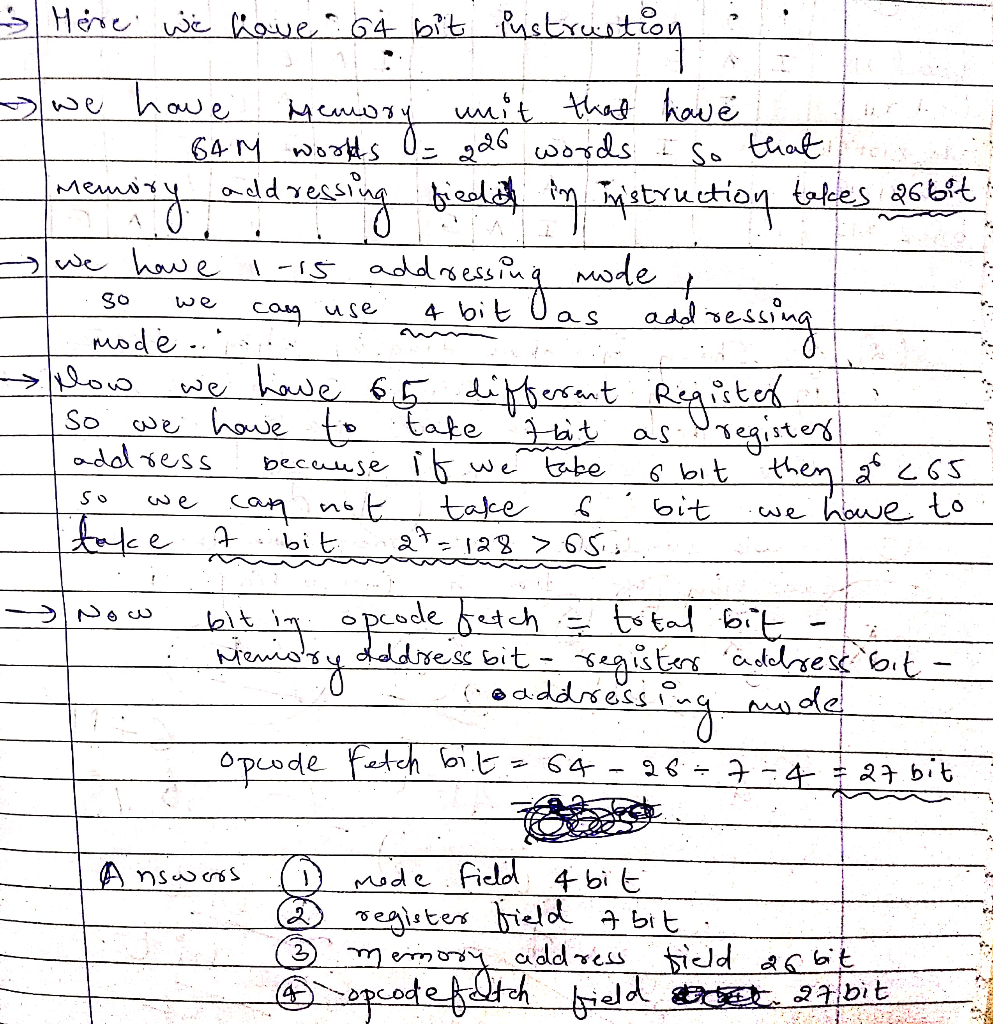 → Here we have 64 bit instruction
→ we have Memory unit that have
64M words = 2^26 words so that
Memory addressing field in instruction takes 26bit
→ we have 1-15 addressing mode,
so we can use 4 bit as addressing
mode..
→ Now we have 65 different Register
so we have to take 7bit as register
address because if we take 6 bit then 2^6 < 65
so we can not take 6 bit we have to
take 7 bit 2^7 = 128 > 65.
→ Now bit in opcode fetch = total bit -
Memory address bit - register address bit -
addressing mode
opcode Fetch bit = 64 - 26 - 7 - 4 = 27 bit
Answers ① mode field 4 bit
② register field 7 bit.
③ memory address field 26 bit
④ opcode fetch field 27 bit